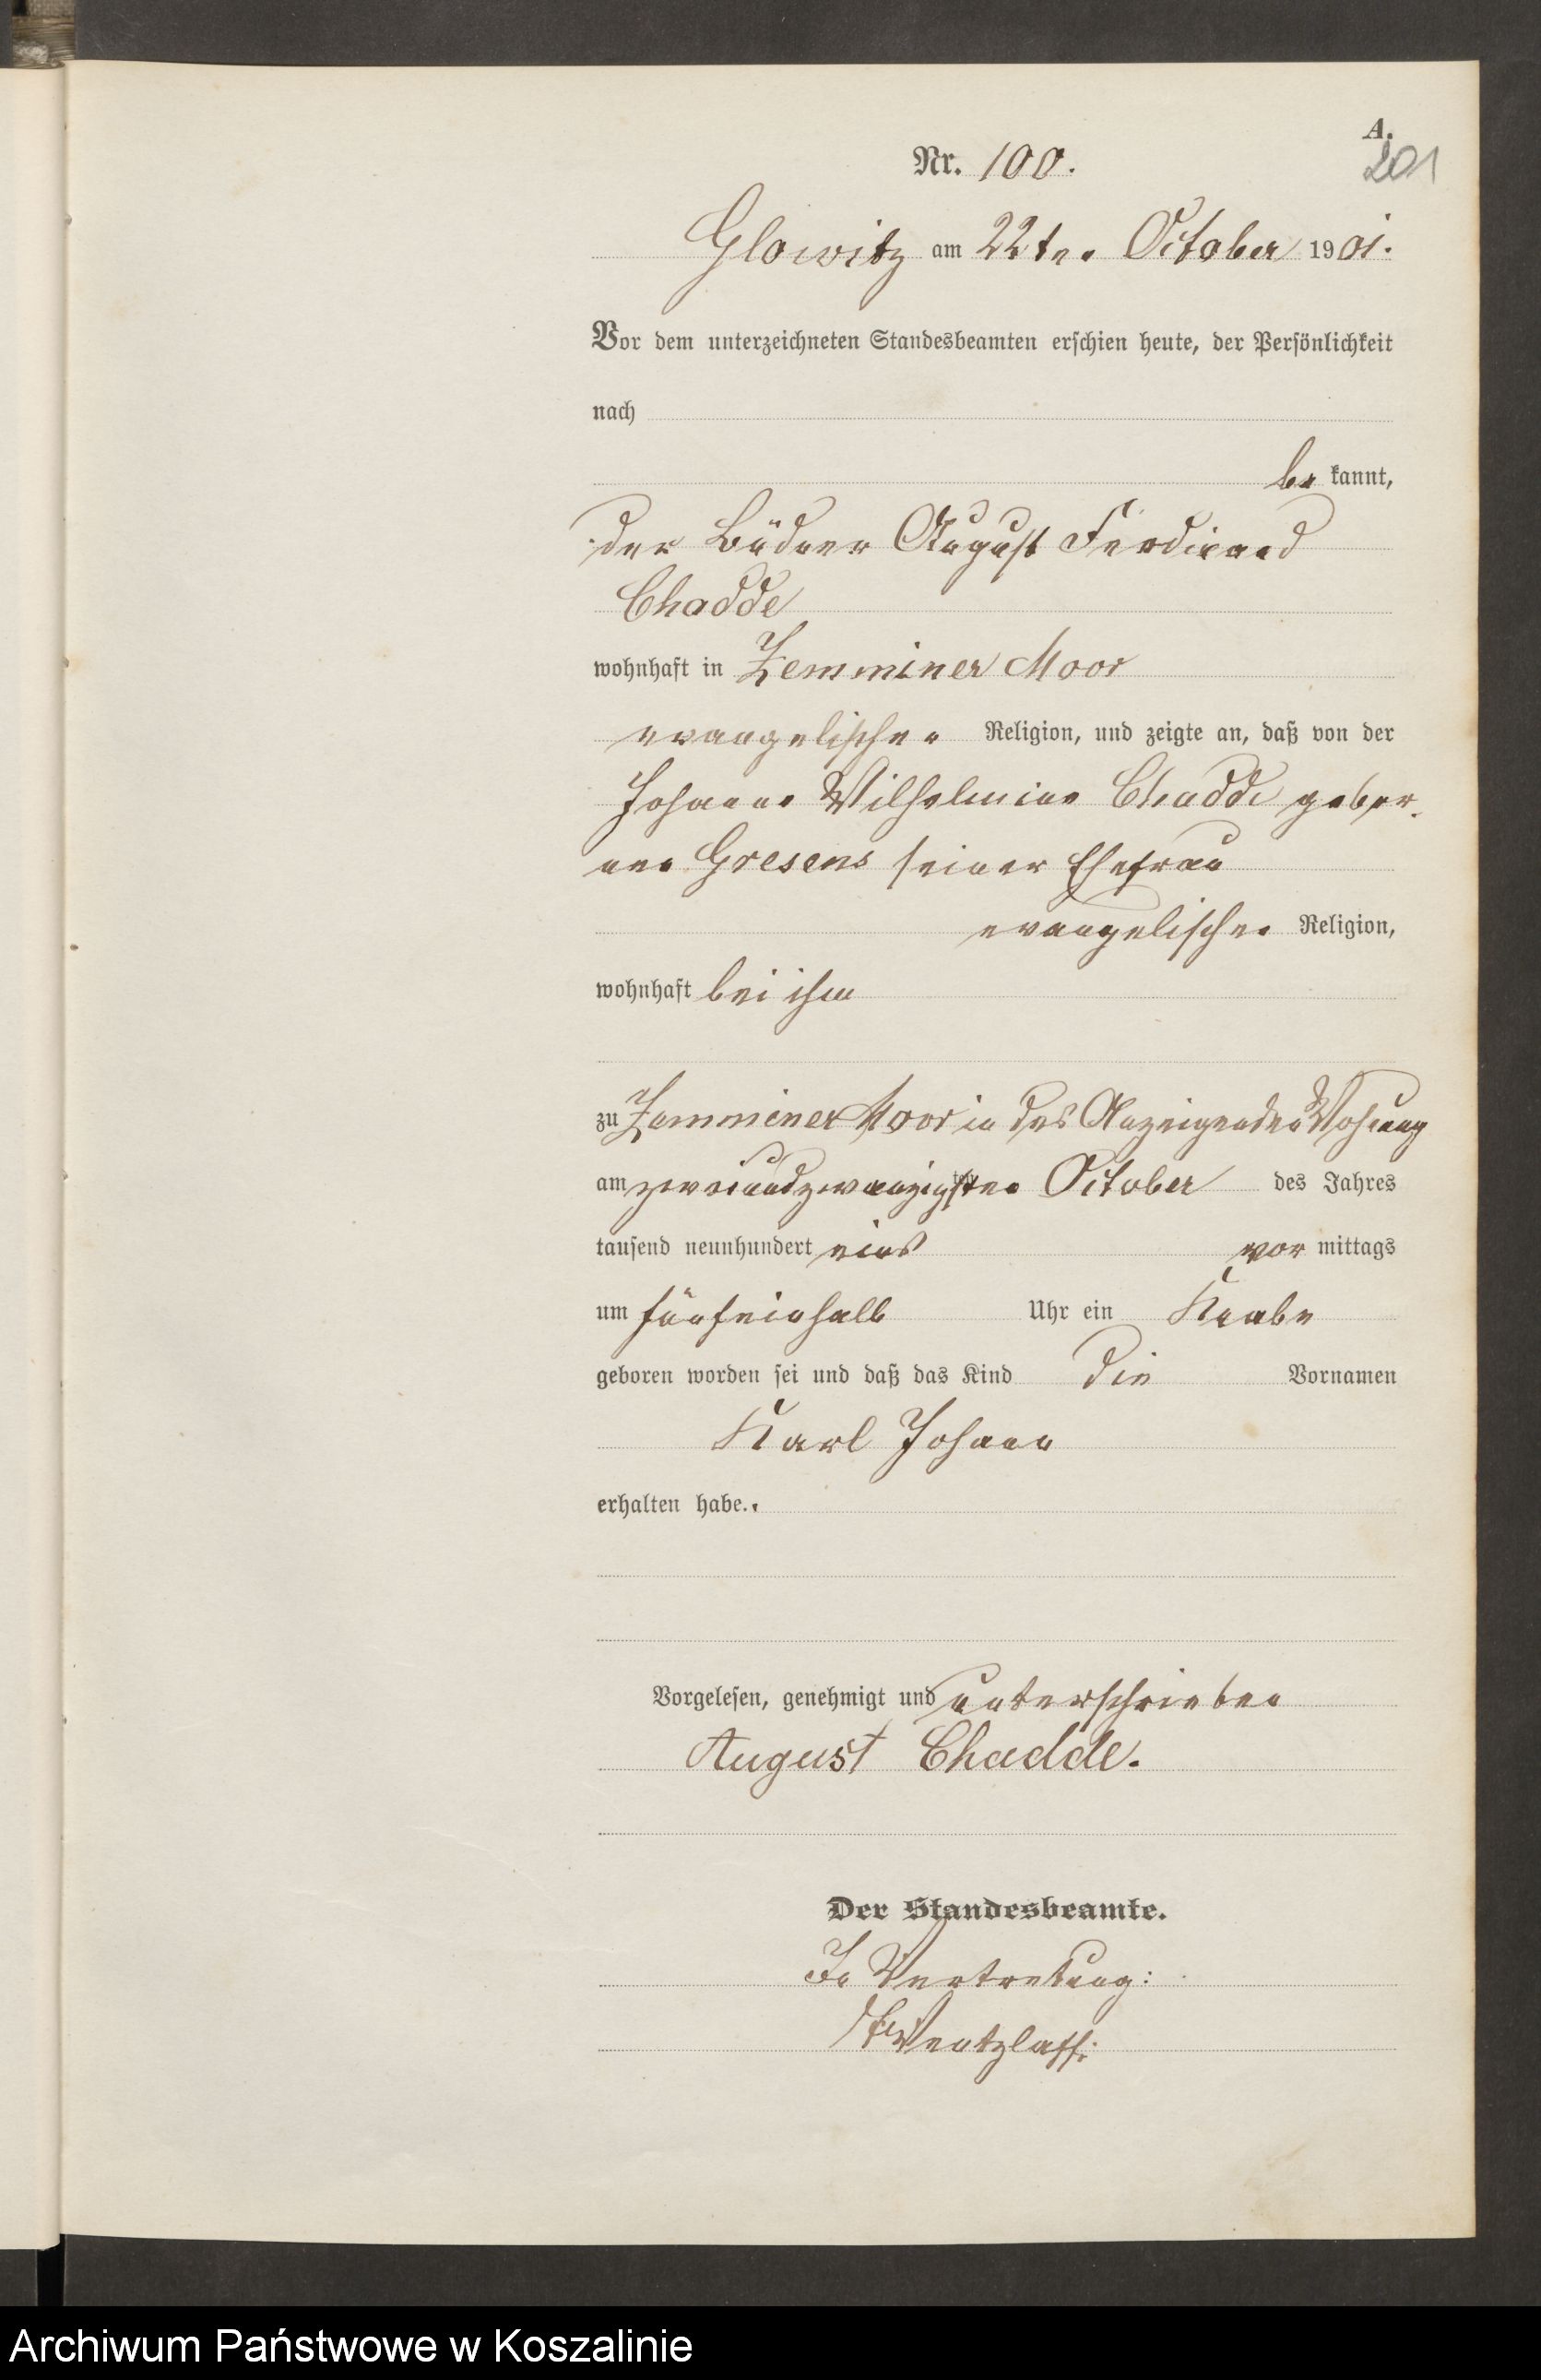 A.
201
Nr. 100.
Glowitz am 22ten October 1901.
Vor dem unterzeichneten Standesbeamten erschien heute, der Persönlichkeit
nach
be kannt,
der Büdner August Ferdinand
Chadde
wohnhaft in Zemminer Moor
evangelischer Religion, und zeigte an, daß von der
Johanne Wilhelmine Chadde gebor-
ene Gresens seiner Ehefrau
evangelischer Religion,
wohnhaft bei ihm
zu Zemminer Moor in des Anzeigenden Wohnung
am zweiundzwanzigsten October des Jahres
tausend neunhundert eins vor mittags
um fünfeinhalb Uhr ein Knabe
geboren worden sei und daß das Kind die Vornamen
Karl Johann
erhalten habe.
Vorgelesen, genehmigt und unterschrieben
August Chadde.
Der Standesbeamte.
In Vertretung:
Wentzlaff.
Archiwum Państwowe w Koszalinie